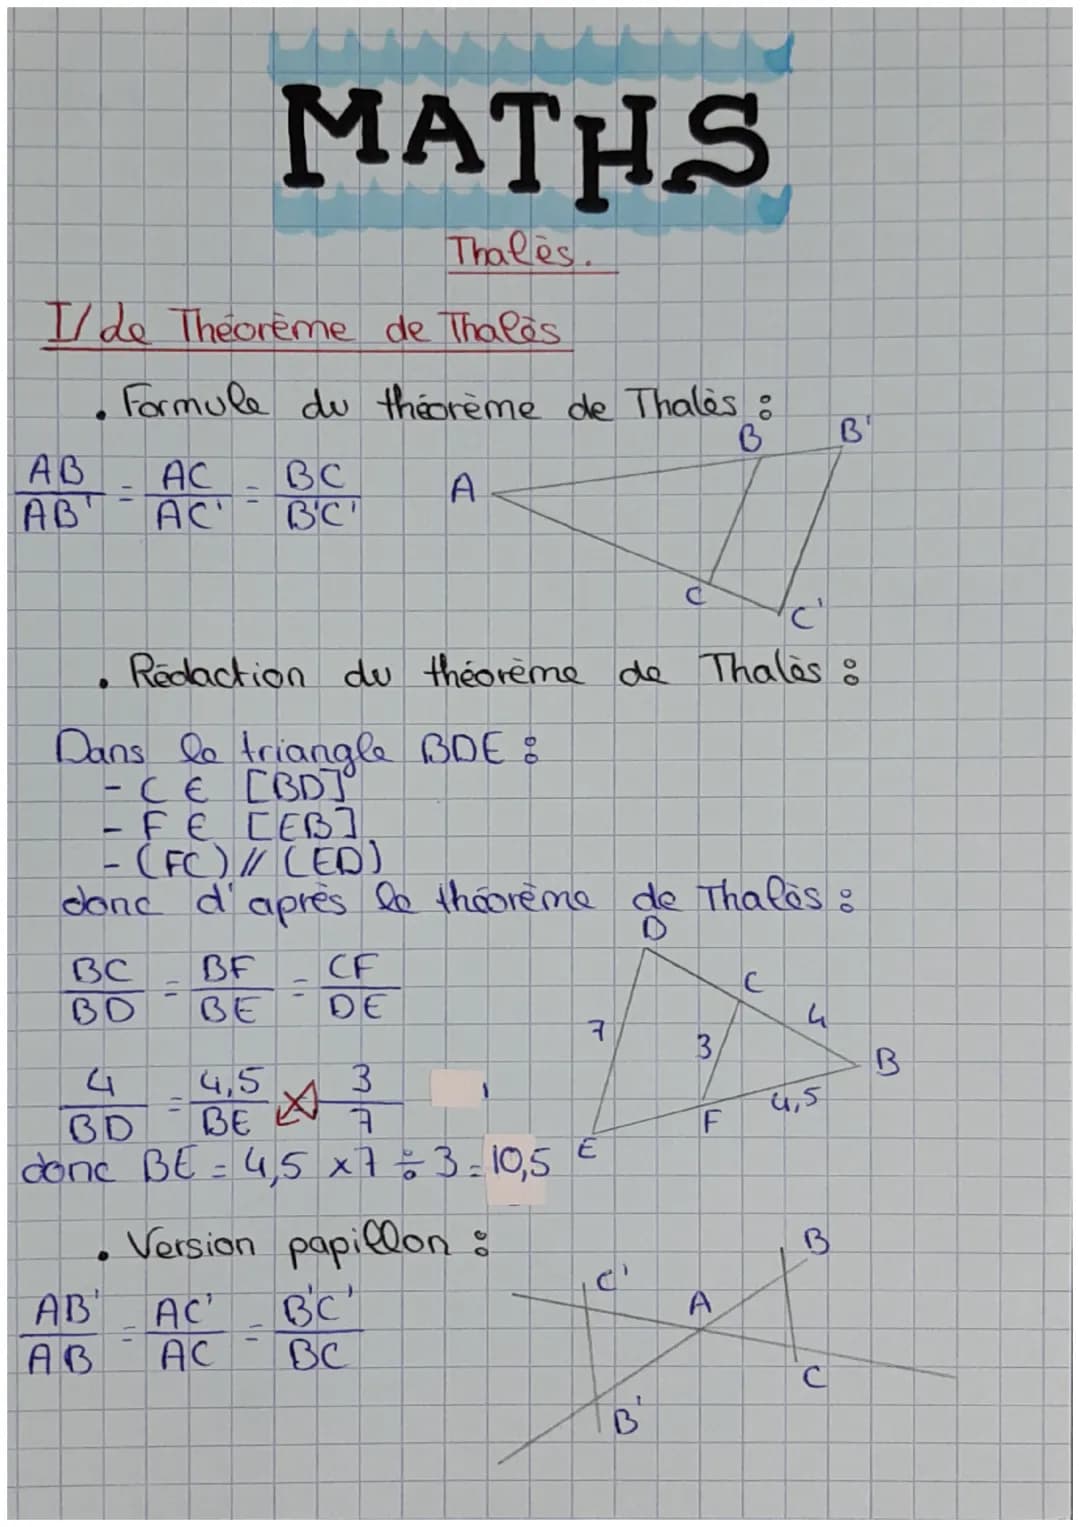 MATHS
Thalès.
I/ Le Théorème de Thalès
• Formule du théorème de Thalès :
AB/AB' = AC/AC' = BC/B'C'
A
B
B'
C
C'
• Rédaction du théorème de Thalès :
Dans le triangle BDE :
- C ∈ [BD]
- F ∈ [EB]
- (FC) // (ED)
donc d'après le théorème de Thalès :
BC/BD = BF/BE = CF/DE
4/BD = 4,5/BE = 3/7
donc BE = 4,5 x 7 ÷ 3 = 10,5
D
C
4
7
3
B
4,5
F
E
• Version papillon :
AB'/AB = AC'/AC = B'C'/BC
B
C'
A
C
B'